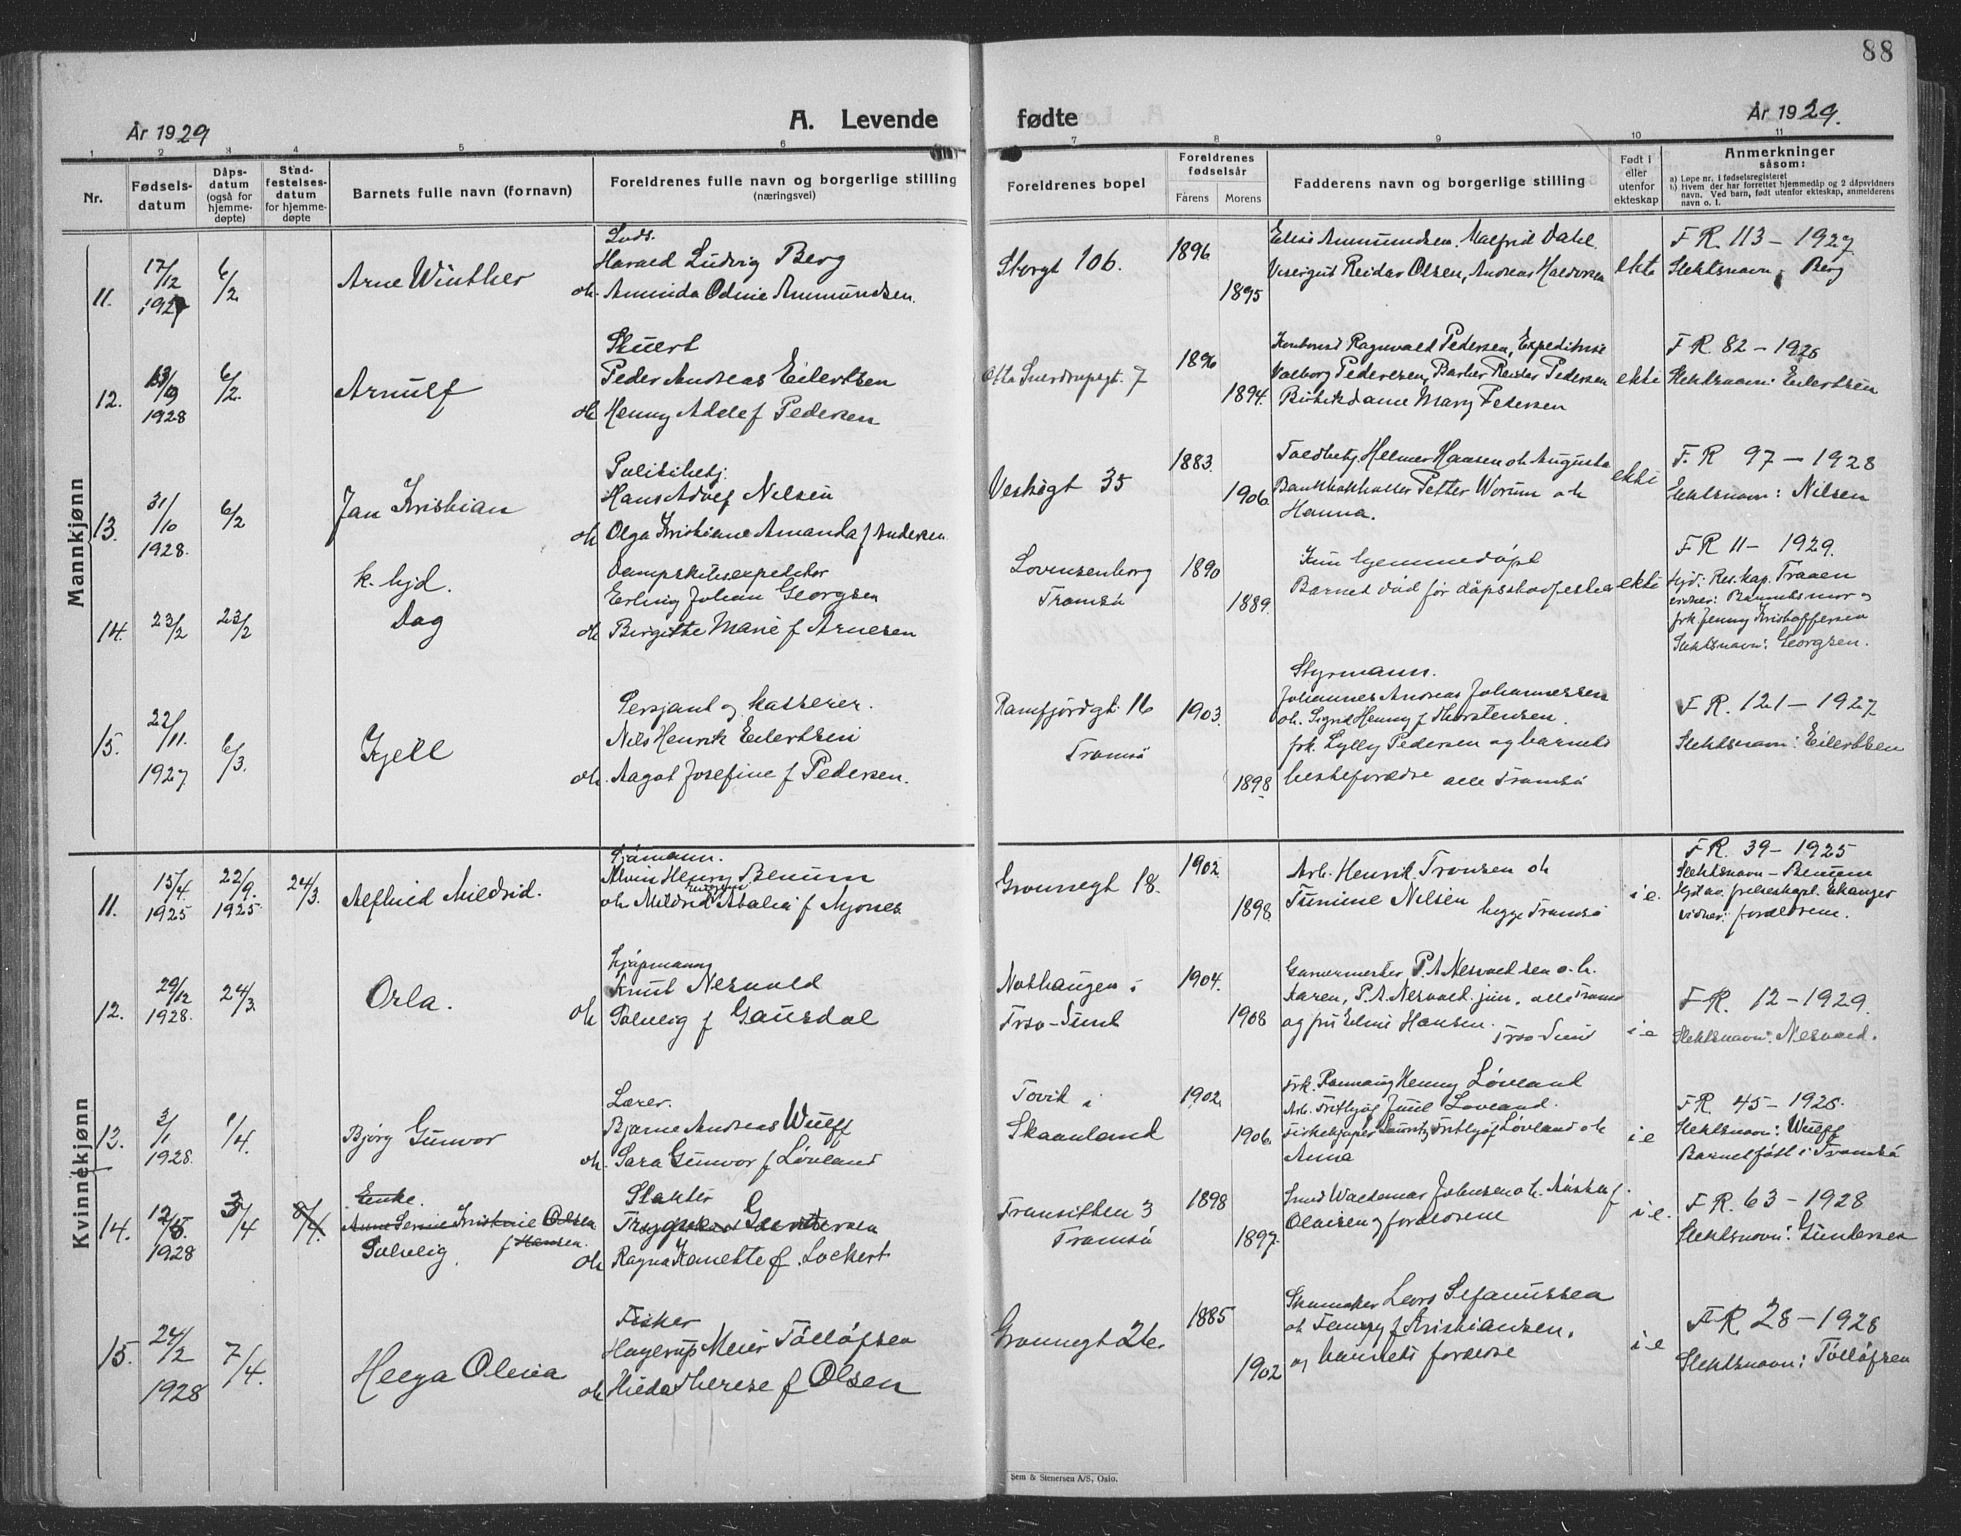 88
År 1929
A. Levende
fødte
År 1929.
1 2 3 4 5 6 7 8 9 10 11
Nr.
Fødsels-
datum
Dåps-
datum
(også for
hjemme-
døpte)
Stad-
festelses-
datum
for hjemme-
døpte
Barnets fulle navn (fornavn)
Foreldrenes fulle navn og borgerlige stilling
(næringsvei)
Foreldrenes bopel
Foreldrenes
fødselsår
Farens Morens
Fadderens navn og borgerlige stilling
Født i
eller
utenfor
ekteskap
Anmerkninger
såsom:
a) Løpe nr. i fødselsregisteret
b) Hvem der har forrettet hjemmedåp og 2 dåpsvidners
navn. Ved barn, født utenfor ekteskap, anmelderens
navn o. l.
Mannkjønn
11.
17/12
1927
6/2
Arne Winther
Harald Ludvig Berg
oh. Aminda Odine Ammundsen.
Storgt 106.
1896
1895
Elise Ammundsen. Malfrid Dahl.
Reidar Olsen, Andreas Haldorsen
ekte
F R. 113 - 1927
Slektsnavn, Berg
12.
13/9
1928
6/2.
Arnulf
Stuert
Peder Andreas Eilertsen
oh Henny Adele f Pedersen
Otto Sverdrupsgt. 7
1896
1894.
Ragnvald Pedersen, Expeditrise
Valborg Pedersen, Barber Reidar Pedersen
Butikdame Mary Pedersen
ekte
F R. 82 - 1928
Slektsnavn: Eilertsen
13.
31/10
1928.
6/2
Jan Kristian
Politibetj.
Hans Adolf Nilsen
oh Olga Kristiane Amanda f Andersen
Vestregt 35
1883.
1906.
Toldbetj Helmer Hansen oh Augusta
Bankbokholder Petter Worum oh
Hanna.
ekte
F. R 97 - 1928
Slektsnavn: Nilsen
14.
23/2
23/2
k. hjd.
Dag
Dampskibsexpeditør
Erling Johan Georgsen
oh Birgitte Marie f Arnesen
Lorensenborg
Tromsø
1890
1889.
Kun hjemmedøpt
Barnet død før dåpsstadfestelse
ekte
F R 11 - 1929.
Hjd: Res. kap. Traaen
vidner: Barnets mor og
frk. Jenny Kristoffersen
Slektsnavn: Georgsen.
15.
22/11.
1927
6/3.
Kjell
Sersjant og kasserer.
Nils Henrik Eilertsen
oh. Aagot Josefine f Pedersen.
Ramfjordgt. 16
Tromsø
1903.
1898
Styrmann.
Johannes Andreas Johannessen
oh. Signe Henny f Thorstensen.
frk. Lylly Pedersen og barnets
besteforeldre alle Tromsø
F R. 121 - 1927
Slektsnavn: Eilertsen
Kvinnekjønn
11.
15/4
1925
22/9.
1925
24/3.
Alfhild Mildrid.
Sjømann.
Alvin Henry Benum
oh Mildrid Atalia f Mjones
Grønnegt 18.
1902.
1898.
Arb. Henrik Tronsen oh
Tunine Nilsen begge Tromsø
i e.
F R. 39 - 1925
Slektsnavn - Benum
vidner: foreldrene.
12.
29/12
1928.
24/3
Orla.
Kjøpmann
Knut Nesvold
oh Solveig f Gausdal
Nothaugen i
Trsø-Sund
1904.
1908
Garvermester P. A Nesvold sen o. h.
Karen, P. A. Nesvold jun. alle Tromsø
og fru Eline Hansen. Trsø-Sund
i e
F R. 12 - 1929.
Slektsnavn: Nesvold.
13.
3/1
1928.
1/4.
Bjørg Gunvor
Lærer.
Bjarne Andreas Wulff
oh. Sara Gunvor f Løvland
Tovik i
Skaanland
1902.
1906.
Frk. Rannaug Henny Løvland
Arb. Fritjof Juul Løvland.
Fiskekjøper Lauritz Fritjof Løvland oh
Anna
i e
F R. 45 - 1928.
Slektsnavn: Wulff
Barnet født i Tromsø
14.
12/5.
1928
3/4
8/4.
Enke.
Anne Serine Kristine Olsen
f Hansen.
Solveig.
Slakter
Trygve Gundersen
oh Ragna Hanette f. Lockert
Transitten 3
Tromsø
1898
1897.
Waldemar Johnsen oh. Aasta f.
Olsen og foreldrene
i e.
F R. 63 - 1928
Slektsnavn: Gundersen
15.
24/2
1928
7/4.
Helga Olivia
Fisker
Hagerup Meier Tolløfsen
oh Hilda Therese f Olsen
Grønnegt 26.
1885
1902
Skomaker Lars Stefanussen
oh Fanny f Kristiansen.
og barnets foreldre
i e
F R. 28 - 1928
Slektsnavn: Tolløfsen
Sem & Stenersen A/S, Oslo.